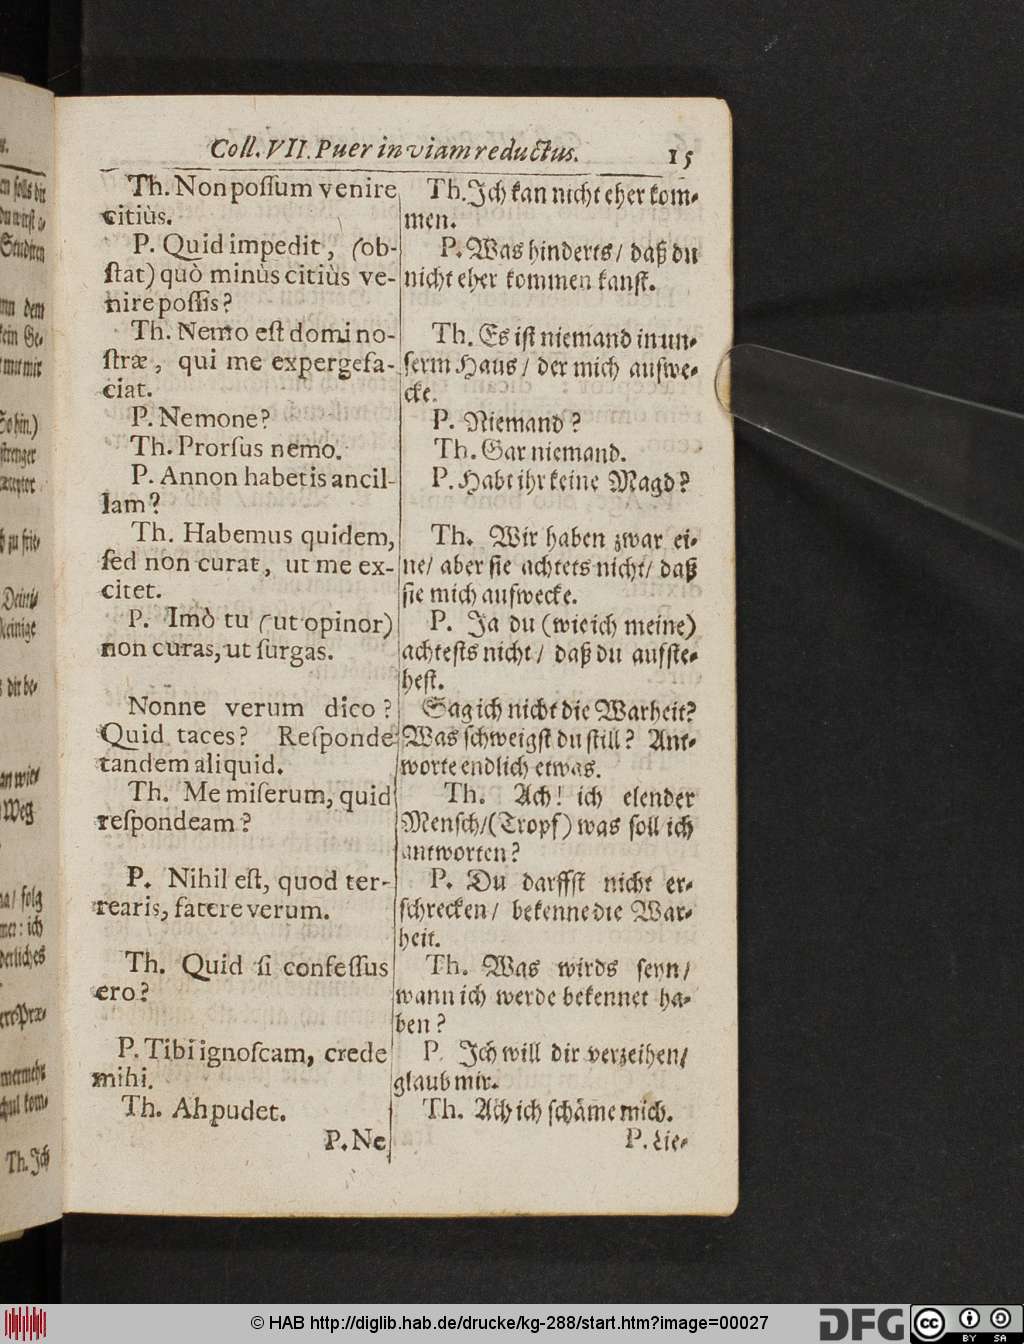 Coll. VII. Puer in viam reductus. 15
Th. Non poſſum venire
citiùs.
P. Quid impedit, (ob-
ſtat) quò minùs citiùs ve-
nire poſſis?
Th. Nemo eſt domi no-
ſtræ, qui me expergefa-
ciat.
P. Nemone?
Th. Prorſus nemo.
P. Annon habetis ancil-
lam?
Th. Habemus quidem,
ſed non curat, ut me ex-
citet.
P. Imò tu (ut opinor)
non curas, ut ſurgas.
Nonne verum dico?
Quid taces? Reſponde
tandem aliquid.
Th. Me miſerum, quid
reſpondeam?
P. Nihil eſt, quod ter-
rearis, fatere verum.
Th. Quid ſi confeſſus
ero?
P. Tibi ignoſcam, crede
mihi.
Th. Ah pudet.
P. Ne
Th. Ich kan nicht eher kom-
men.
P. Was hinderts / daß du
nicht eher kommen kanſt.
Th. Es iſt niemand in un-
ſerm Haus / der mich aufwe-
cke.
P. Niemand?
Th. Gar niemand.
P. Habt ihr keine Magd?
Th. Wir haben zwar ei-
ne / aber ſie achtets nicht / daß
ſie mich aufwecke.
P. Ja du (wie ich meine)
achteſts nicht / daß du aufſte-
heſt.
Sag ich nicht die Warheit?
Was ſchweigſt du ſtill? Ant-
worte endlich etwas.
Th. Ach! ich elender
Menſch / (Tropf) was ſoll ich
antworten?
P. Du darffſt nicht er-
ſchrecken / bekenne die War-
heit.
Th. Was wirds ſeyn /
wann ich werde bekennet ha-
ben?
P. Ich will dir verzeihen /
glaub mir.
Th. Ach ich ſchäme mich.
P. Lie-
© HAB http://diglib.hab.de/drucke/kg-288/start.htm?image=00027
DFG
cc
BY SA